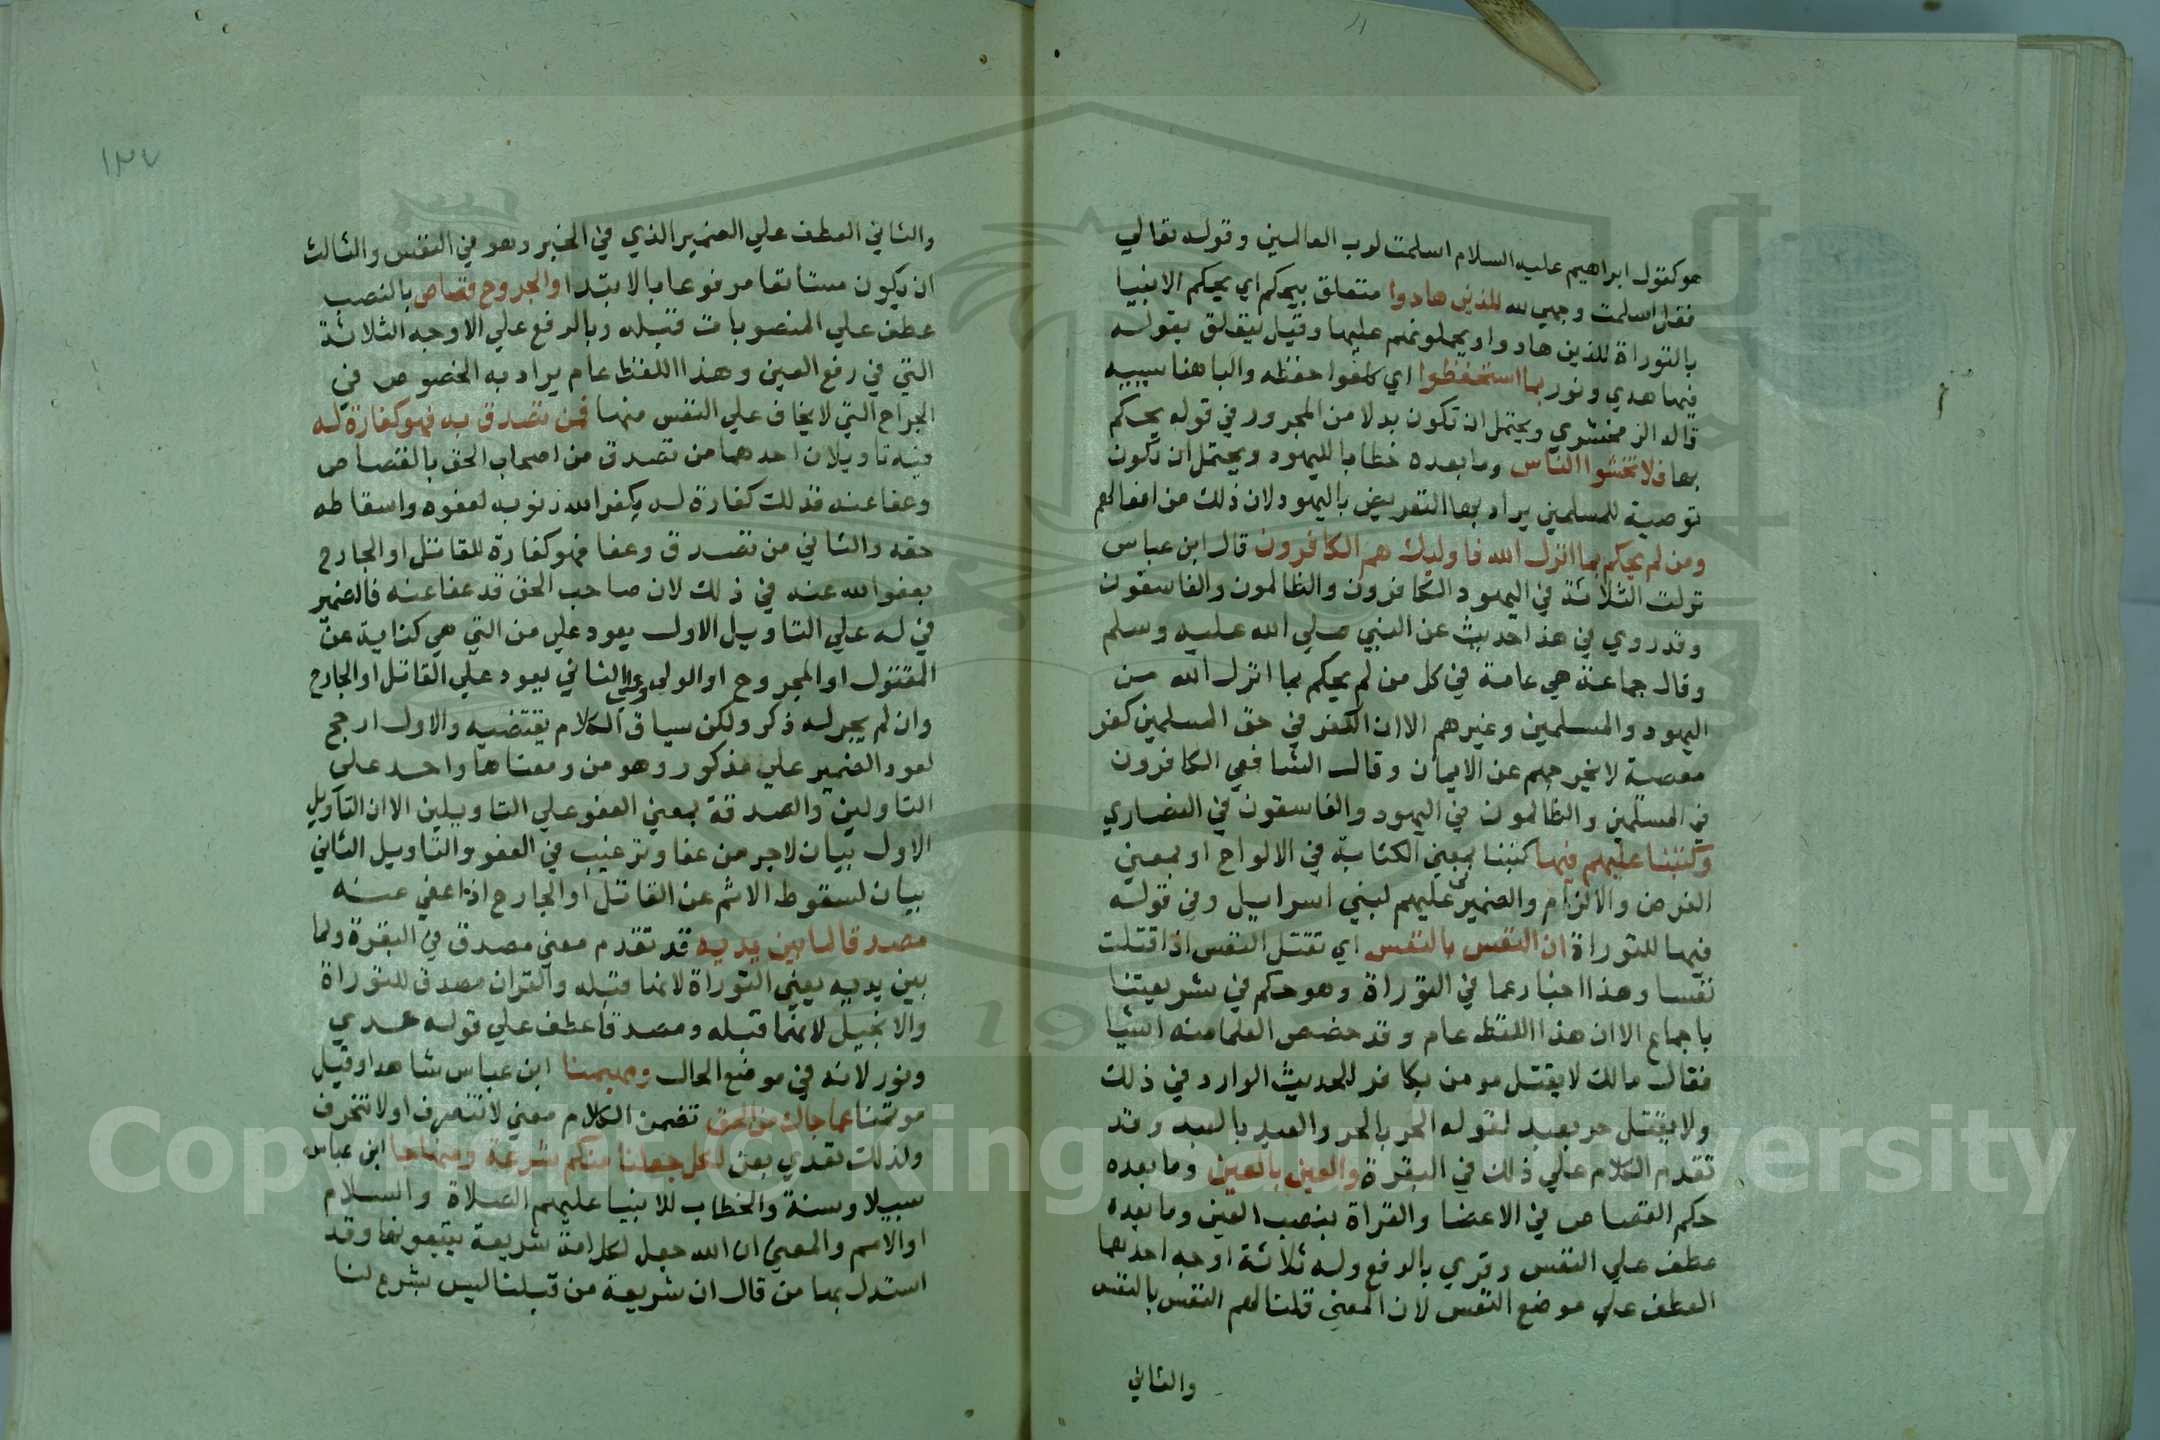 هو كقول ابراهيم عليه السلام اسلمت لرب العالمين وقوله تعالي
فقل اسلمت وجهي لله للذين هادوا متعلق بيحكم اي يحكم الانبيا
بالتوراة للذين هادوا ويحملونهم عليها وقيل يتعلق بقوله
فيها هدي ونور بما استحفظوا اي كلفوا حفظه والبا هنا سببيه
قاله الزمخشري ويحتمل ان تكون بدلا من المجرور في قوله يحكم
بها فلا تخشوا الناس وما بعده خطابا لليهود ويحتمل ان تكون
توصية للمسلمين يراد بها التعريض باليهود لان ذلك من افعالهم
ومن لم يحكم بما انزل الله فاوليك هم الكافرون قال ابن عباس
نزلت الثلاثة في اليهود الكافرون والظالمون والفاسقون
وقد روي في هذا حديث عن النبي صلي الله عليه وسلم
وقال جماعة هي عامة في كل من لم يحكم بما انزل الله من
اليهود والمسلمين وغيرهم الا ان الكفر في حق المسلمين كفر
معصية لا يخرجهم عن الايمان وقال الشافعي الكافرون
في المسلمين والظالمون في اليهود والفاسقون في النصاري
وكتبنا عليهم فيها كتبنا بمعني الكتابة في الالواح او بمعني
الفرض والالزام والضمير في عليهم لبني اسراييل وفي قوله
فيها للتوراة ان النفس بالنفس اي تقتل النفس اذا قتلت
نفسا وهذا اخبار عما في التوراة وهو حكم في شريعتنا
باجماع الا ان هذا اللفظ عام وقد خصص العلما منه اشيا
فقال مالك لا يقتل مومن بكافر للحديث الوارد في ذلك
ولا يقتل حر بعبد لقوله الحر بالحر والعبد بالعبد وقد
تقدم الكلام علي ذلك في البقرة والعين بالعين وما بعده
حكم القصاص في الاعضا والقراة بنصب العين وما بعده
عطف علي النفس وقري بالرفع وله ثلاثة اوجه احدهما
العطف علي موضع النفس لان المعني قلنا لهم النفس بالنفس
والثاني
١٣٧
والثاني العطف علي الضمير الذي في الخبر وهو في النفس والثالث
ان يكون مستانفا مرفوعا بالابتدا والجروح قصاص بالنصب
عطف علي المنصوبات قبله وبالرفع علي الاوجه الثلاثة
التي في رفع العين وهذا اللفظ عام يراد به الخصوص في
الجراح التي لا يخاف علي النفس منها فمن تصدق به فهو كفارة له
فيه تاويلان احدهما من تصدق من اصحاب الحق بالقصاص
وعفا عنه فذلك كفارة له يكفر الله ذنوبه لعفوه واسقاطه
حقه والثاني من تصدق وعفا فهو كفارة للقاتل او الجارح
بعفو الله عنه في ذلك لان صاحب الحق قد عفا عنه فالضمير
في له علي التاويل الاول يعود علي من التي هي كناية عن
المقتول او المجروح او الولي وعلي الثاني يعود علي القاتل او الجارح
وان لم يجر له ذكر ولكن سياق الكلام يقتضيه والاول ارجح
لعود الضمير علي مذكور وهو من ومعناها واحد علي
التاولين والصدقة بمعني العفو علي التاويلين الا ان التاويل
الاول بيان لاجر من عفا وترغيب في العفو والتاويل الثاني
بيان لسقوط الاثم عن القاتل او الجارح اذا عفي عنه
مصدقا لما بين يديه قد تقدم معني مصدق في البقرة ولما
بين يديه يعني التوراة لانها قبله والقران مصدق للتوراة
والانجيل لانهما قبله ومصدقا عطف علي قوله هدي
ونور لانه في موضع الحال ومهيمنا ابن عباس شاهدا وقيل
موتمنا عما جاك من الحق تضمن الكلام معني لا تنصرف او لا تنحرف
ولذلك تعدي بعن لكل جعلنا منكم شرعة ومنهاجا ابن عباس
سبيلا وسنة والخطاب للانبيا عليهم الصلاة والسلام
او الامم والمعني ان الله جعل لكل امة شريعة يتبعونها وقد
استدل بها من قال ان شريعة من قبلنا ليس بشرع لنا
Copyright © King Saud University